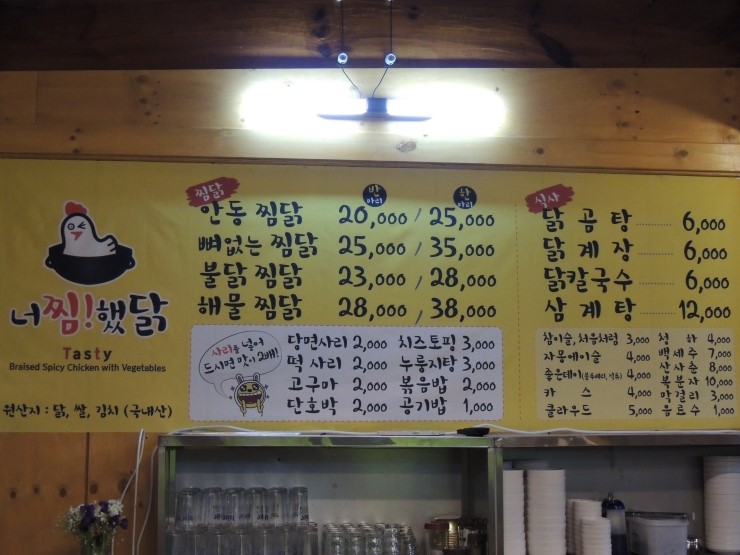 찜닭
반마리
한마리
안동 찜닭 20,000 / 25,000
뼈없는 찜닭 25,000 / 35,000
불닭 찜닭 23,000 / 28,000
해물 찜닭 28,000 / 38,000
사리를 넣어
드시면 맛이 2배!
당면사리 2,000 치즈토핑 3,000
떡 사리 2,000 누룽지탕 3,000
고구마 2,000 볶음밥 2,000
단호박 2,000 공기밥 1,000
식사
닭 곰 탕 ........ 6,000
닭 계 장 ........ 6,000
닭칼국수 ...... 6,000
삼 계 탕 ...... 12,000
참이슬, 처음처럼 3,000 청 하 4,000
자몽에이슬 4,000 백세주 7,000
좋은데이 4,000 산사춘 8,000
카 스 4,000 복분자 10,000
클라우드 5,000 막걸리 3,000
음료수 1,000
너찜!했닭
Tasty
Braised Spicy Chicken with Vegetables
원산지 : 닭, 쌀, 김치 (국내산)